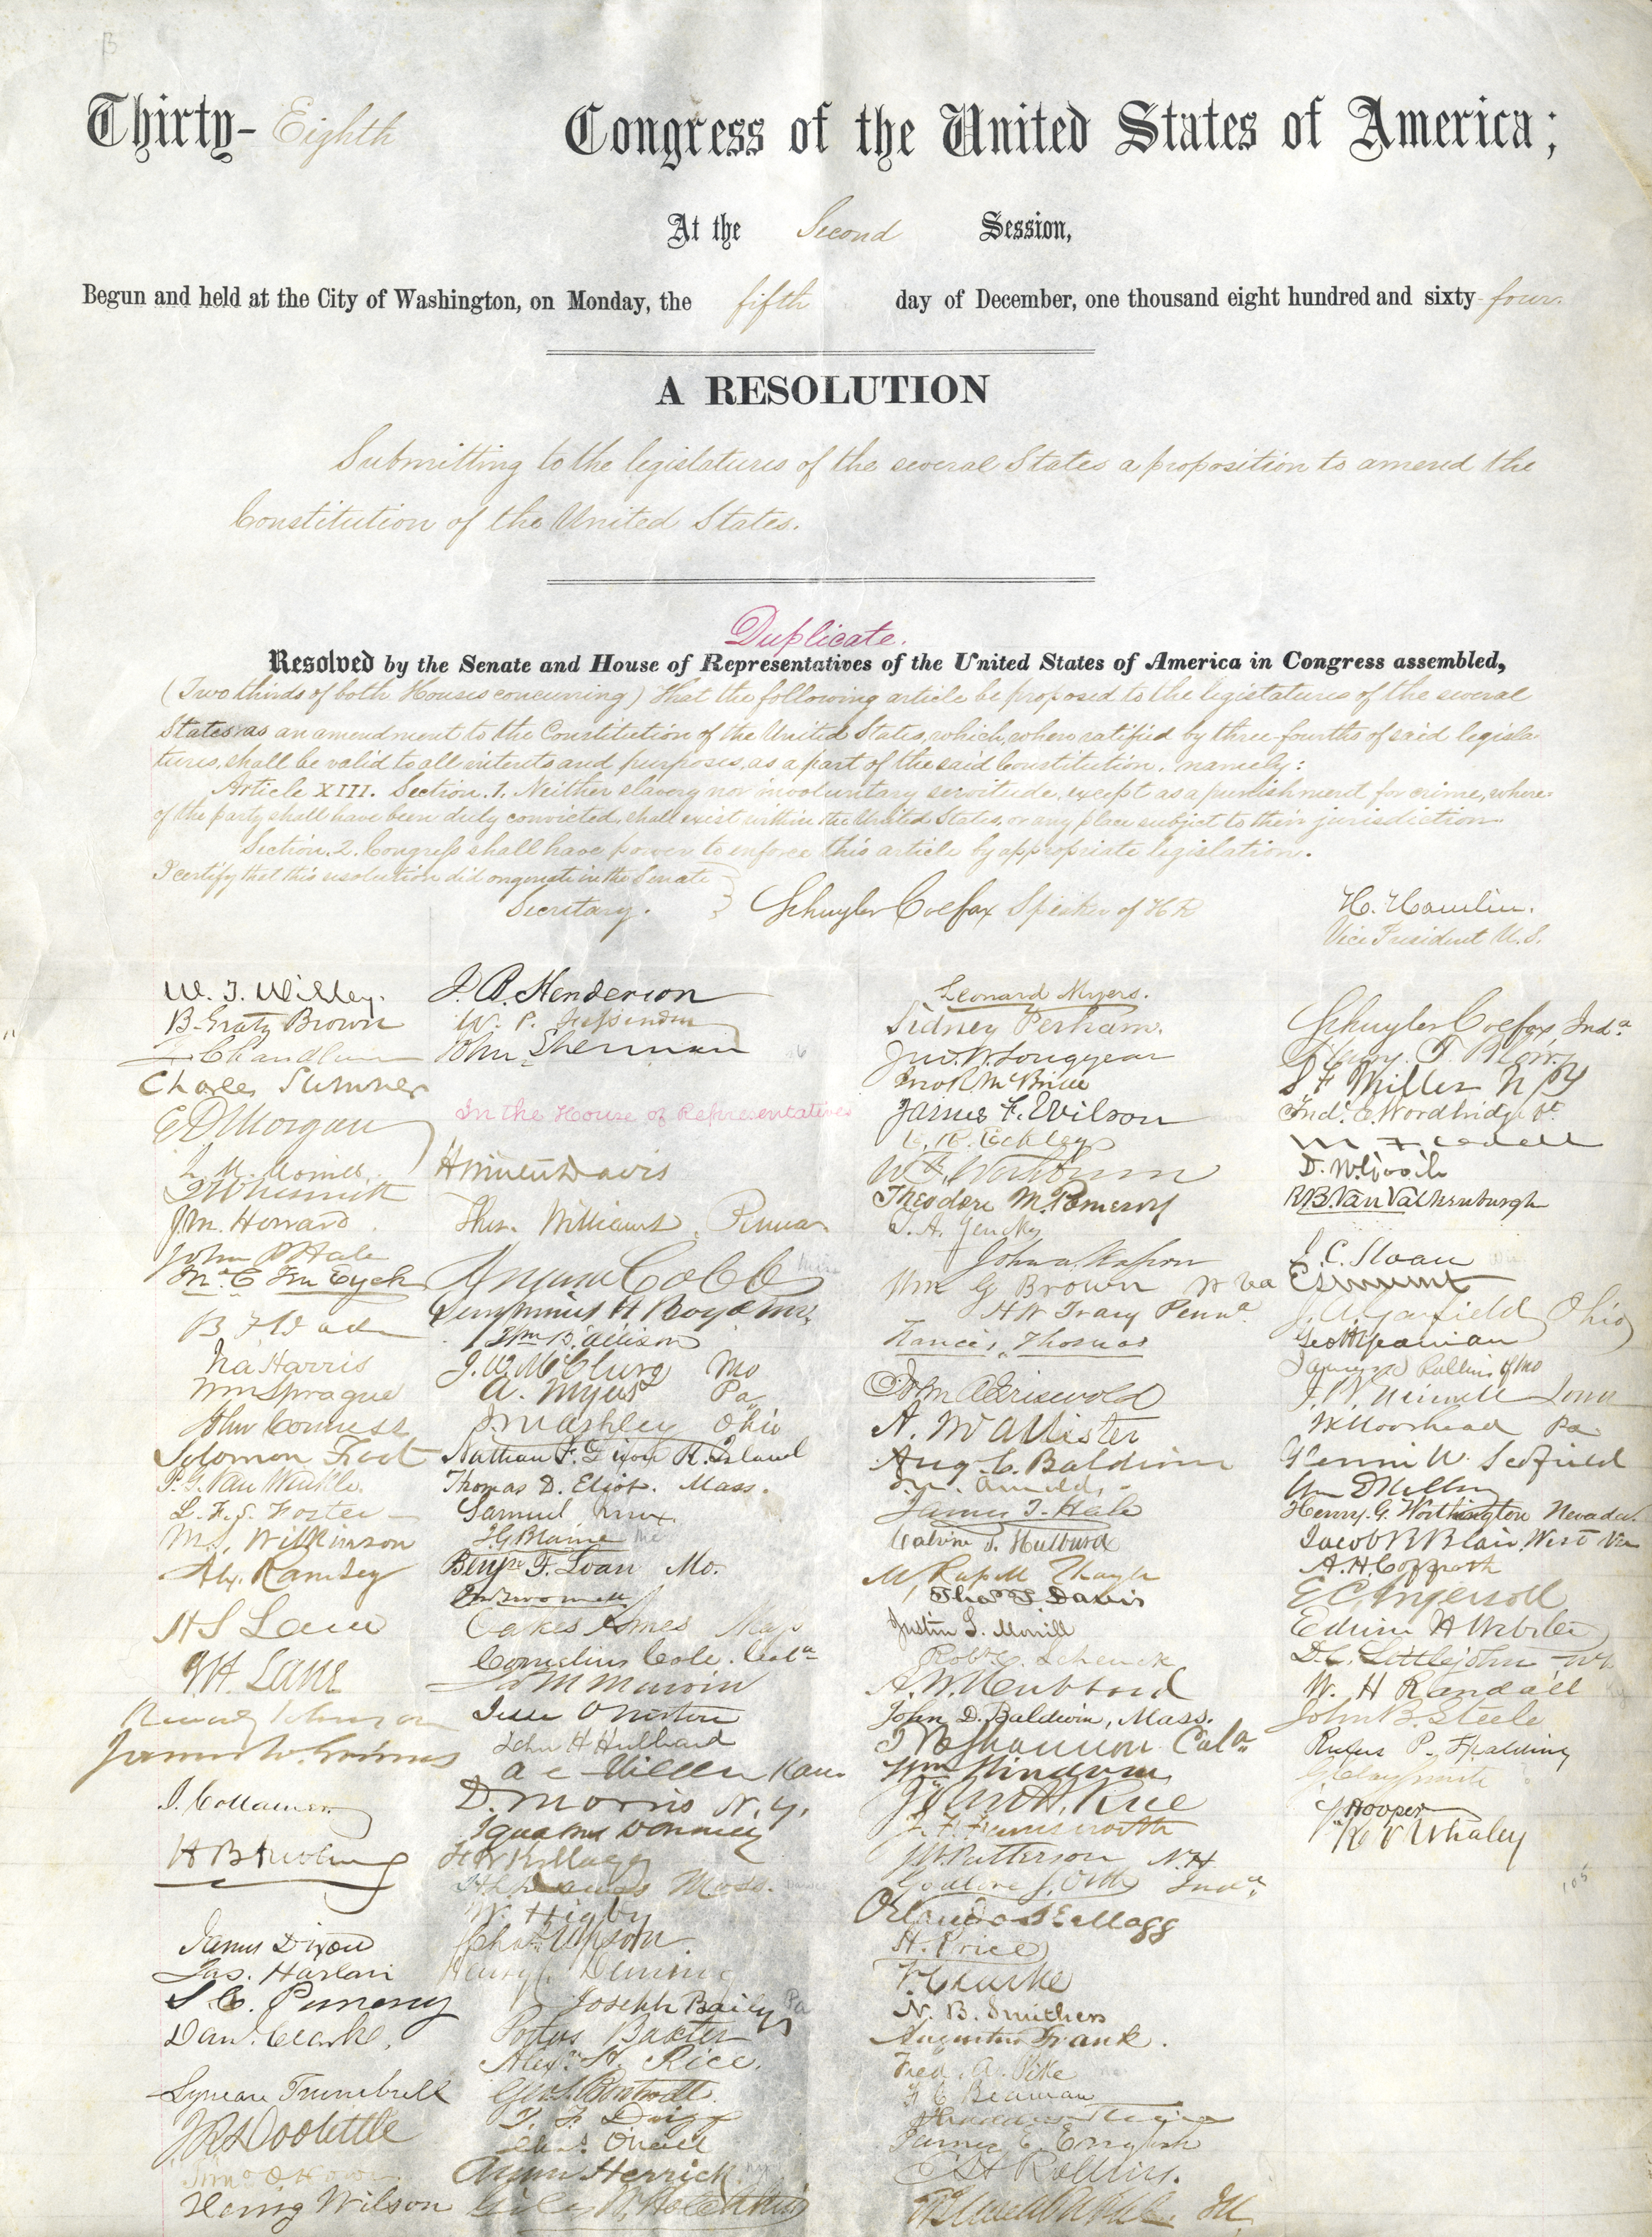 Thirty-Eighth Congress of the United States of America;
At the Second Session,
Begun and held at the City of Washington, on Monday, the fifth day of December, one thousand eight hundred and sixty-four.
A RESOLUTION
Submitting to the legislatures of the several States a proposition to amend the
Constitution of the United States.
Duplicate.
Resolved by the Senate and House of Representatives of the United States of America in Congress assembled,
(Two thirds of both Houses concurring) that the following article be proposed to the legislatures of the several
States as an amendment to the Constitution of the United States, which, when ratified by three-fourths of said legisla-
tures, shall be valid to all intents and purposes, as a part of the said Constitution, namely:
Article XIII. Section. 1. Neither slavery nor involuntary servitude, except as a punishment for crime, where-
of the party shall have been duly convicted, shall exist within the United States, or any place subject to their jurisdiction.
Section. 2. Congress shall have power to enforce this article by appropriate legislation.
I certify that this resolution did originate in the Senate
Secretary.
Schuyler Colfax Speaker of H R
H. Hamlin.
Vice President U.S.
W. T. Willey.
B. Gratz Brown
Z. Chandler
Charles Sumner
E D Morgan
L. M. Morrill
J W Nesmith
J. M. Howard
John P Hale
B F Wade
Ira Harris
Wm Sprague
John Conness
Solomon Foot
P. G. Van Winkle.
L. F. S. Foster
M. S. Wilkinson
Alex. Ramsey
H S Lane
J H Lane
Reverdy Johnson
James W. Grimes
J. Collamer
H B Anthony
James Dixon
Jas. Harlan
S. C. Pomeroy
Dan. Clark.
Lyman Trumbull
J R Doolittle
Henry Wilson
J. B. Henderson
W. P. Fessenden
John Sherman
In the House of Representatives
H Winter Davis
Thos. Williams, Penna
Amasa Cobb
Wm B. Allison
J. W. McClurg Mo
A. Myers Pa
J M Ashley Ohio
Nathan F. Dixon R. Island
Thomas D. Eliot. Mass.
Samuel Knox
J G Blaine Me
Benj. F. Loan Mo.
Oakes Ames Mass
Cornelius Cole. Cala
J M Marvin
Jesse O Norton
John H Hubbard
A C Wilder Kan.
D. Morris N. Y.
Ignatius Donnelly
F W Kellogg
H L Dawes Mass.
W. Higby
Chas. Upson.
Henry C Deming
Joseph Baily Pa
Portus Baxter
Alexr. H. Rice.
Geo. S. Boutwell.
Chas. O'Neill
Anson Herrick
Giles W. Hotchkiss
Leonard Myers.
Sidney Perham.
Jno. W. Longyear
Jno R McBride
James F. Wilson
E. R. Eckley
Theodore M. Pomeroy
T. A. Jenckes
John A. Kasson
Wm G Brown W Va
H W Tracy Penna
Francis Thomas
John A Griswold
A. McAllister
Aug. C. Baldwin
I. N. Arnold.
James T. Hale
Calvin T. Hulburd
M Russell Thayer
Thos T Davis
Justin S. Morrill
Robt C. Schenck
A. W. Hubbard
John D. Baldwin, Mass.
T B Shannon Cala
Wm Windom
John H. Rice
J. F. Farnsworth
J W Patterson N. H
Godlove S. Orth Inda
Orlando Kellogg
H. Price
F. Clarke
N. B. Smithers
Augustus Frank.
Fred. A. Pike
F C Beaman
Thaddeus Stevens
James E. English
E H Rollins.
Schuyler Colfax, Inda
Henry. T. Blow
S F Miller N Y
Fredk. E. Woodbridge Vt.
M F Odell
R. B. Van Valkenburgh
I. C. Sloan
J. A. Garfield Ohio
Geo H Yeaman
James S Rollins of Mo
J K Moorhead Pa
Glenni W. Scofield
Henry. G. Worthington Nevada.
Jacob B Blair, West Va
A. H. Coffroth
E C Ingersoll
Edwin H Webster
D. C. Littlejohn N Y
W. H Randall Ky
John B. Steele
Rufus P. Spalding
G Clay Smith
S Hooper
K V Whaley
105